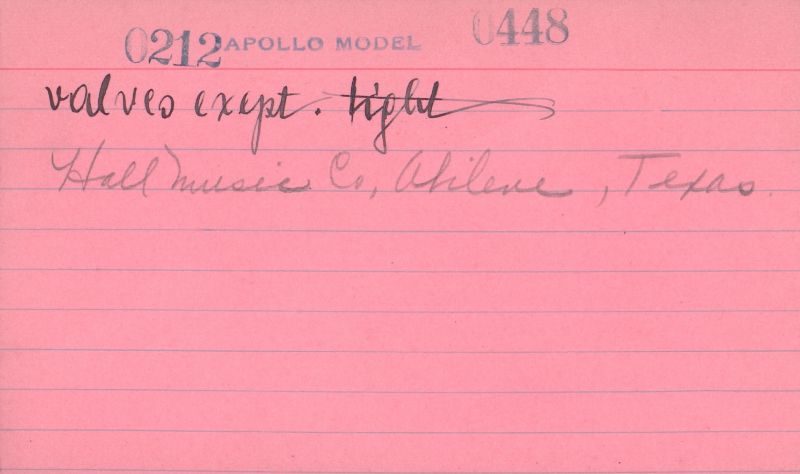 0212 APOLLO MODEL 0448
valves exept. tight
Hall Music Co, Abilene, Texas.